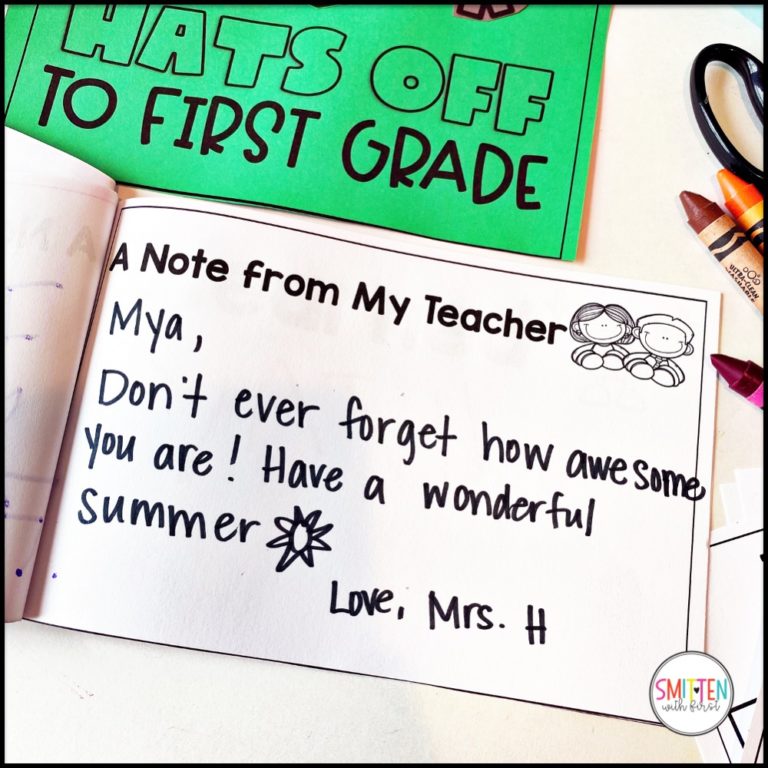 HATS OFF
TO FIRST GRADE
A Note from My Teacher
Mya,
Don't ever forget how awesome
you are! Have a wonderful
summer
Love, Mrs. H
ULTRA-CLEAN
WASHABLE
SMITTEN
with first